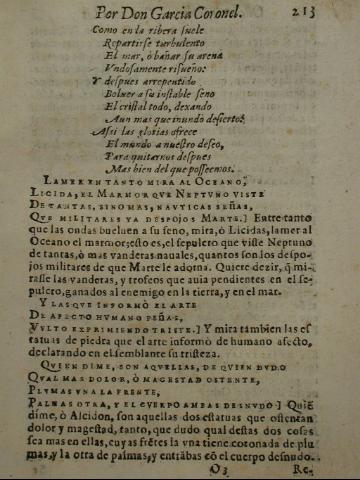 Por Don Garcia Coronel. 213
Como en la ribera suele
Repartirse turbulento
El mar, ò bañar su arena
Vndosamente risueño:
Y despues arrepentido
Boluer a su instable seno
El cristal todo, dexando
Aun mas que inundò desierto:
Assi las glorias ofrece
El mundo a nuestro deseo,
Para quitarnos despues
Mas bien del que posseemos.
LAMER EN TANTO MIRA AL OCEANO,
LICIDA, EL MARMOR QVE NEPTVNO VISTE
DE TANTAS, SINO MAS, NAVTICAS SEÑAS,
QVE MILITARES YA DESPOJOS MARTE.] Entre tanto
que las ondas bueluen a su seno, mira, ò Licidas, lamer al
Oceano el marmor; esto es, el sepulcro que viste Neptuno
de tantas, ò mas vanderas nauales, quantos son los despo-
jos militares de que Marte le adorna. Quiere dezir, q̃ mi-
rasse las vanderas, y trofeos que auia pendientes en el se-
pulcro, ganados al enemigo en la tierra, y en el mar.
Y LAS QVE INFORMÒ EL ARTE
DE AFECTO HVMANO PEÑAS,
VVLTO EXPRIMIENDO TRISTE.] Y mira tambien las es
tatuas de piedra que el arte informò de humano afecto,
declarando en el semblante su tristeza.
QVIEN DIME, SON AQVELLAS, DE QVIEN DVDO
QVAL MAS DOLOR, Ò MAGESTAD OSTENTE,
PLVMAS VNA LA FRENTE,
PALMAS OTRA, Y EL CVERPO AMBAS DESNVDO.] Quiẽ
dime, ò Alcidon, son aquellas dos estatuas que ostentan
dolor y magestad, tanto, que dudo qual destas dos cosas
sea mas en ellas, cuyas frẽtes la vna tiene coronada de plu
mas, y la otra de palmas, y entrãbas cõ el cuerpo desnudo.
O3 Re-